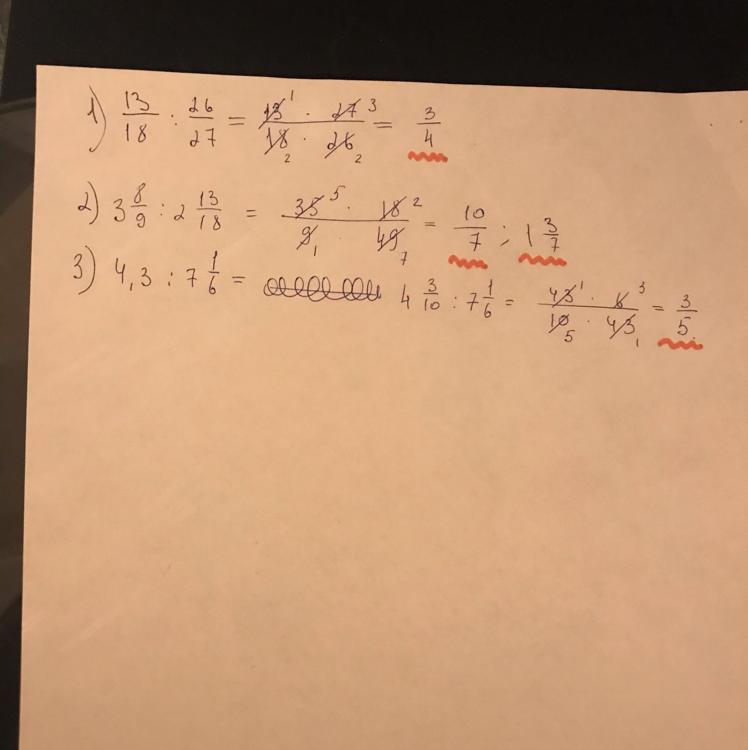 1) 13/18 : 26/27 = 13 1 · 27 3 / 18 2 · 26 2 = 3/4
2) 3 8/9 : 2 13/18 = 35 5 · 18 2 / 9 1 · 49 7 = 10/7 ; 1 3/7
3) 4,3 : 7 1/6 = 4 3/10 : 7 1/6 = 43 1 · 6 3 / 10 5 · 43 1 = 3/5